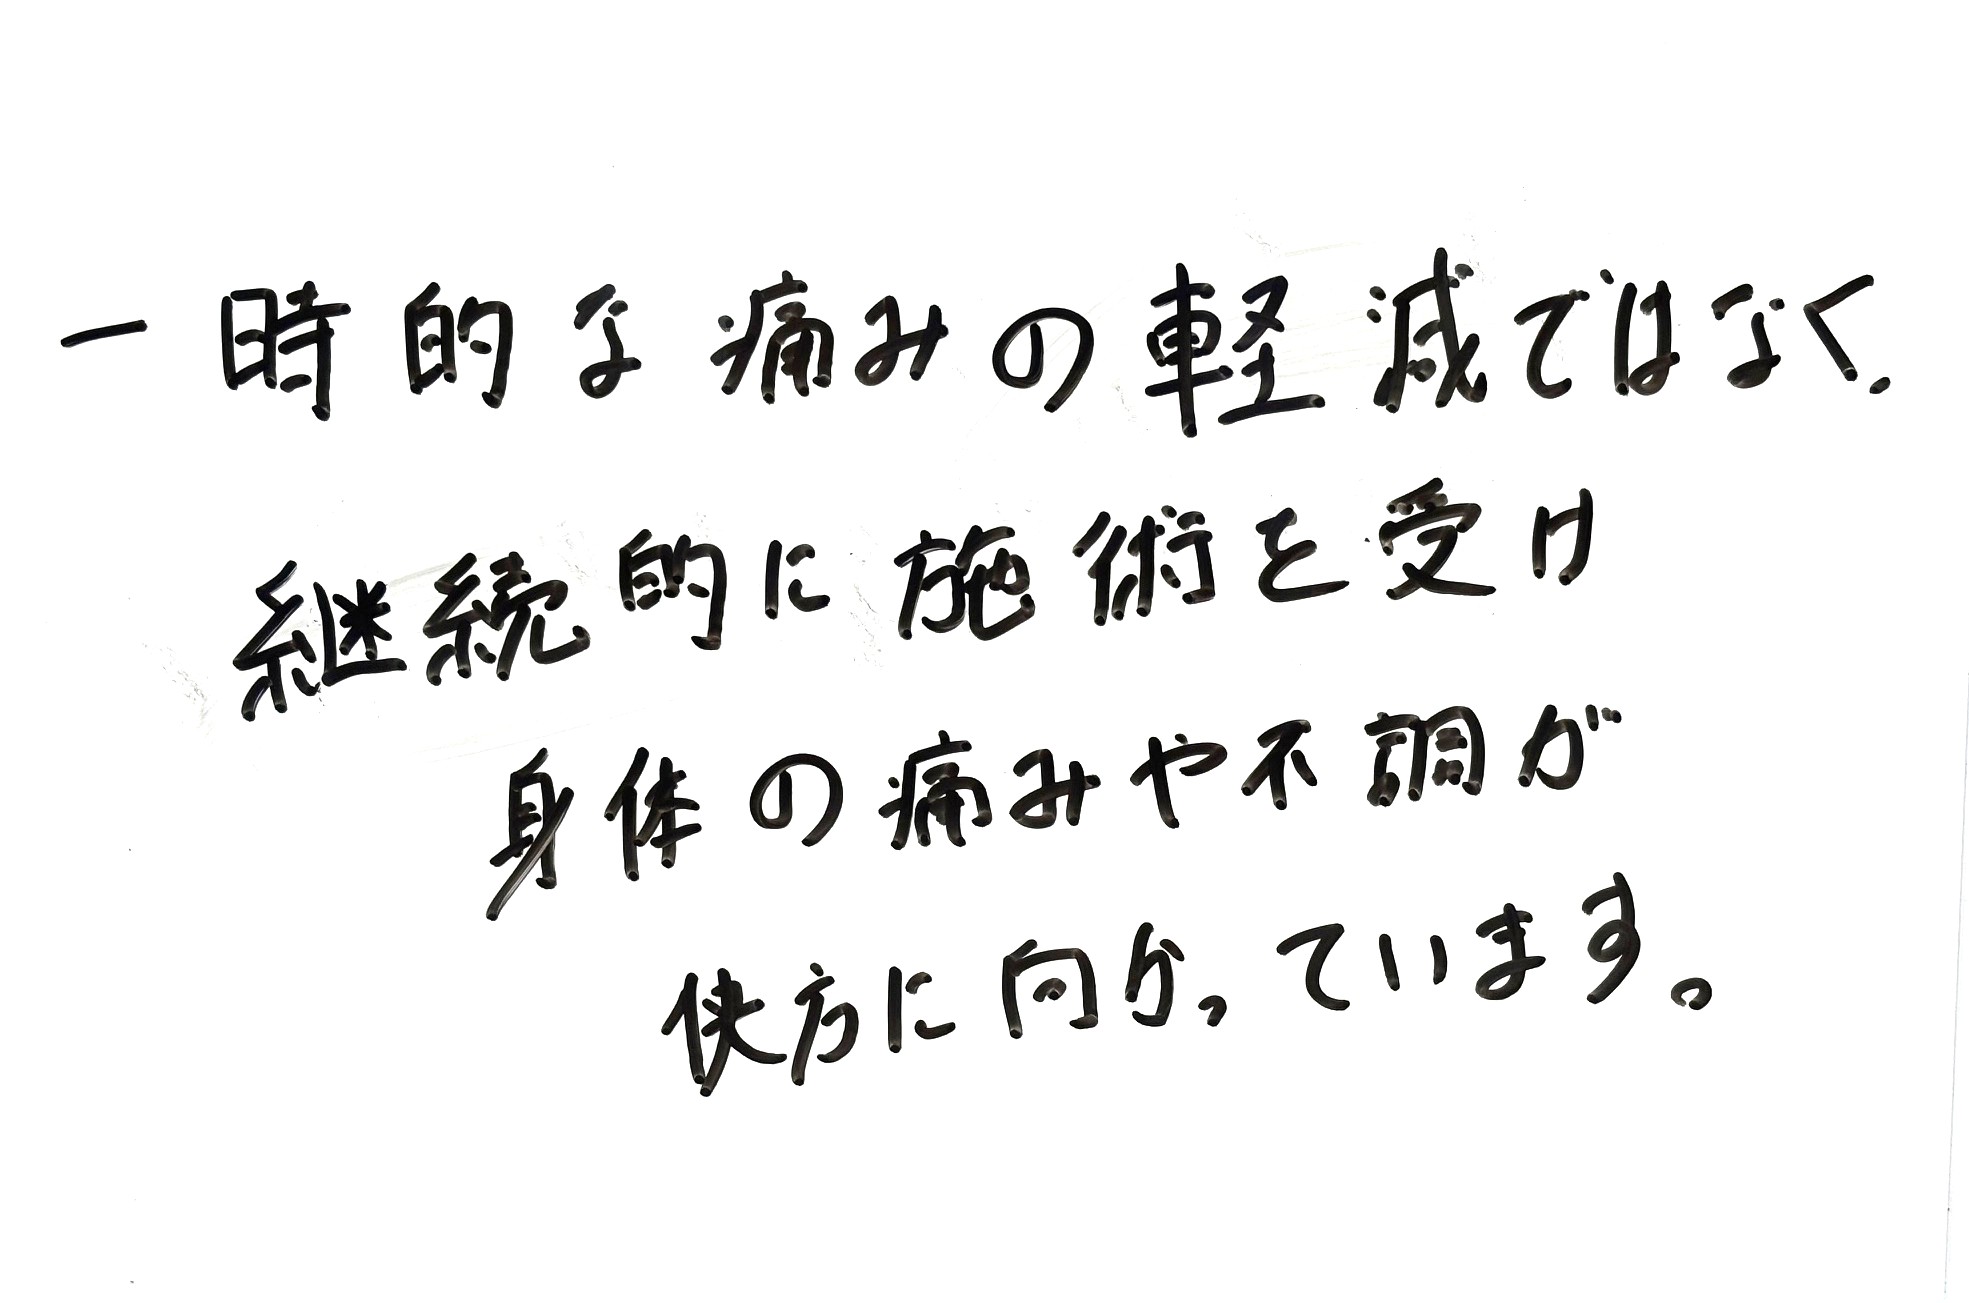 一時的な痛みの軽減ではなく、
継続的に施術を受け
身体の痛みや不調が
快方に向かっています。